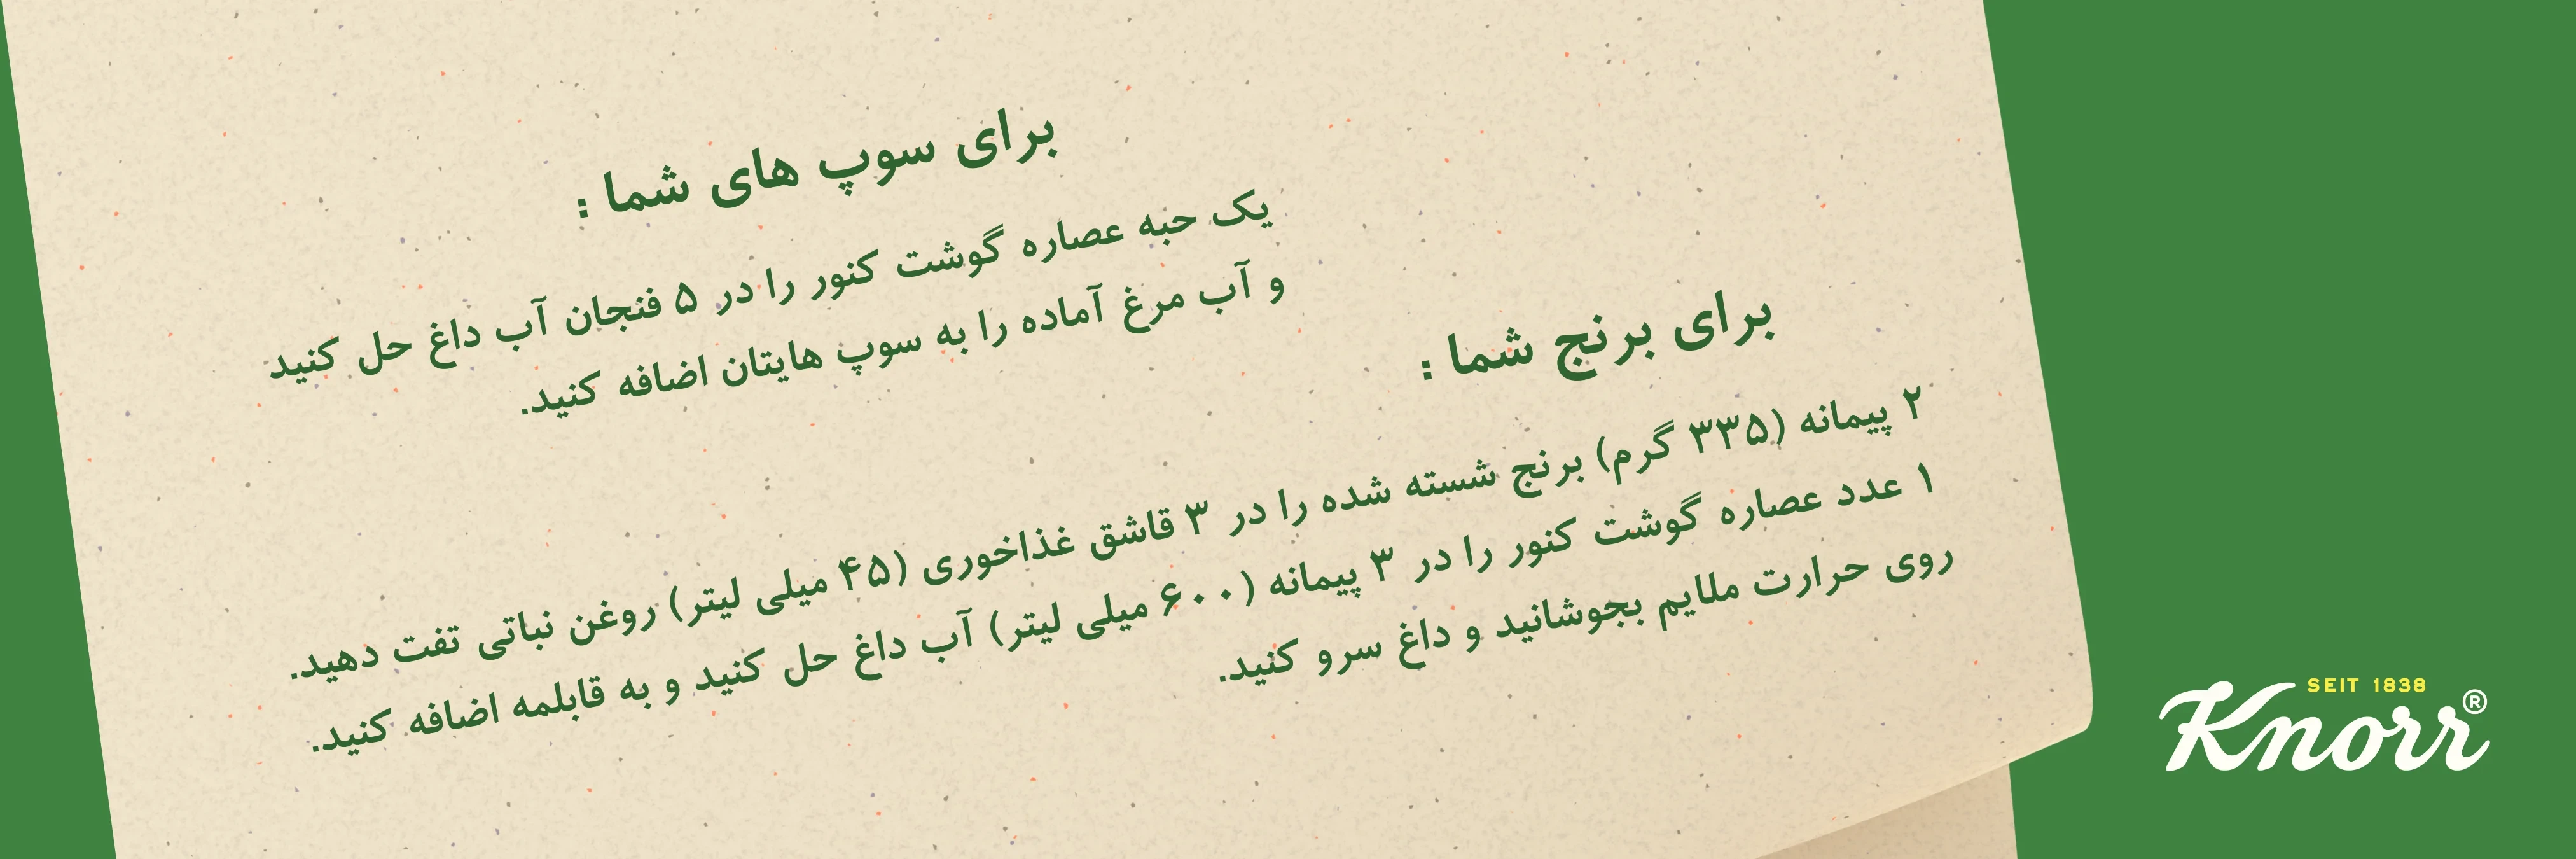 برای سوپ های شما :
یک حبه عصاره گوشت کنور را در ۵ فنجان آب داغ حل کنید
و آب مرغ آماده را به سوپ هایتان اضافه کنید.
برای برنج شما :
۲ پیمانه (۳۳۵ گرم) برنج شسته شده را در ۳ قاشق غذاخوری (۴۵ میلی لیتر) روغن نباتی تفت دهید.
۱ عدد عصاره گوشت کنور را در ۳ پیمانه (۶۰۰ میلی لیتر) آب داغ حل کنید و به قابلمه اضافه کنید.
روی حرارت ملایم بجوشانید و داغ سرو کنید.
SEIT 1838
Knorr®